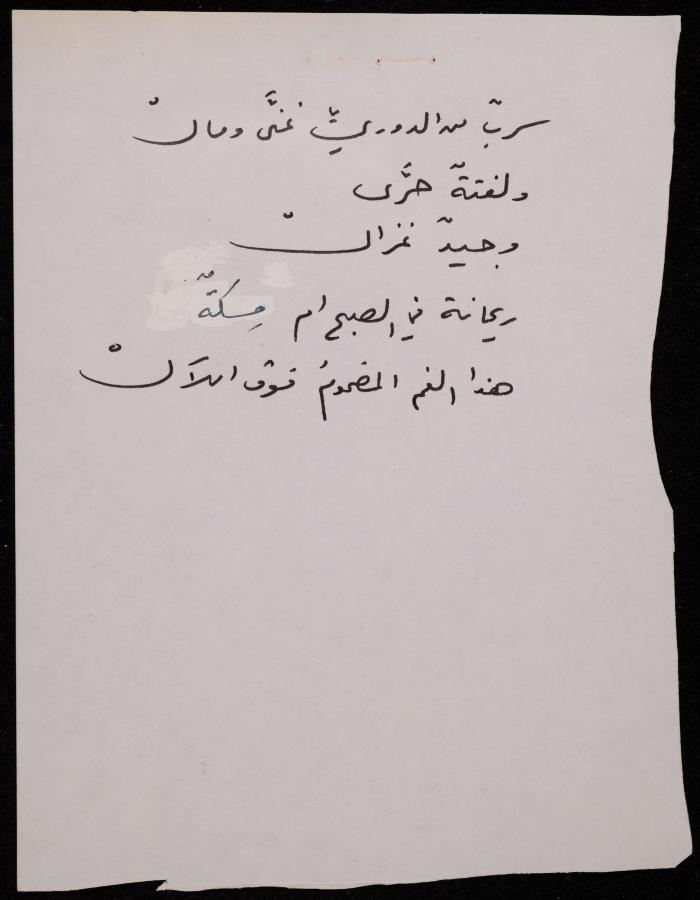 سربٌ من الدوريِّ غنَّى ومالْ
ولفتةٌ حرَّى
وجيدٌ غزالْ
ريحانة في الصبح ام مسكةٌ
هذا الفم المضمومُ فوق اللآلْ